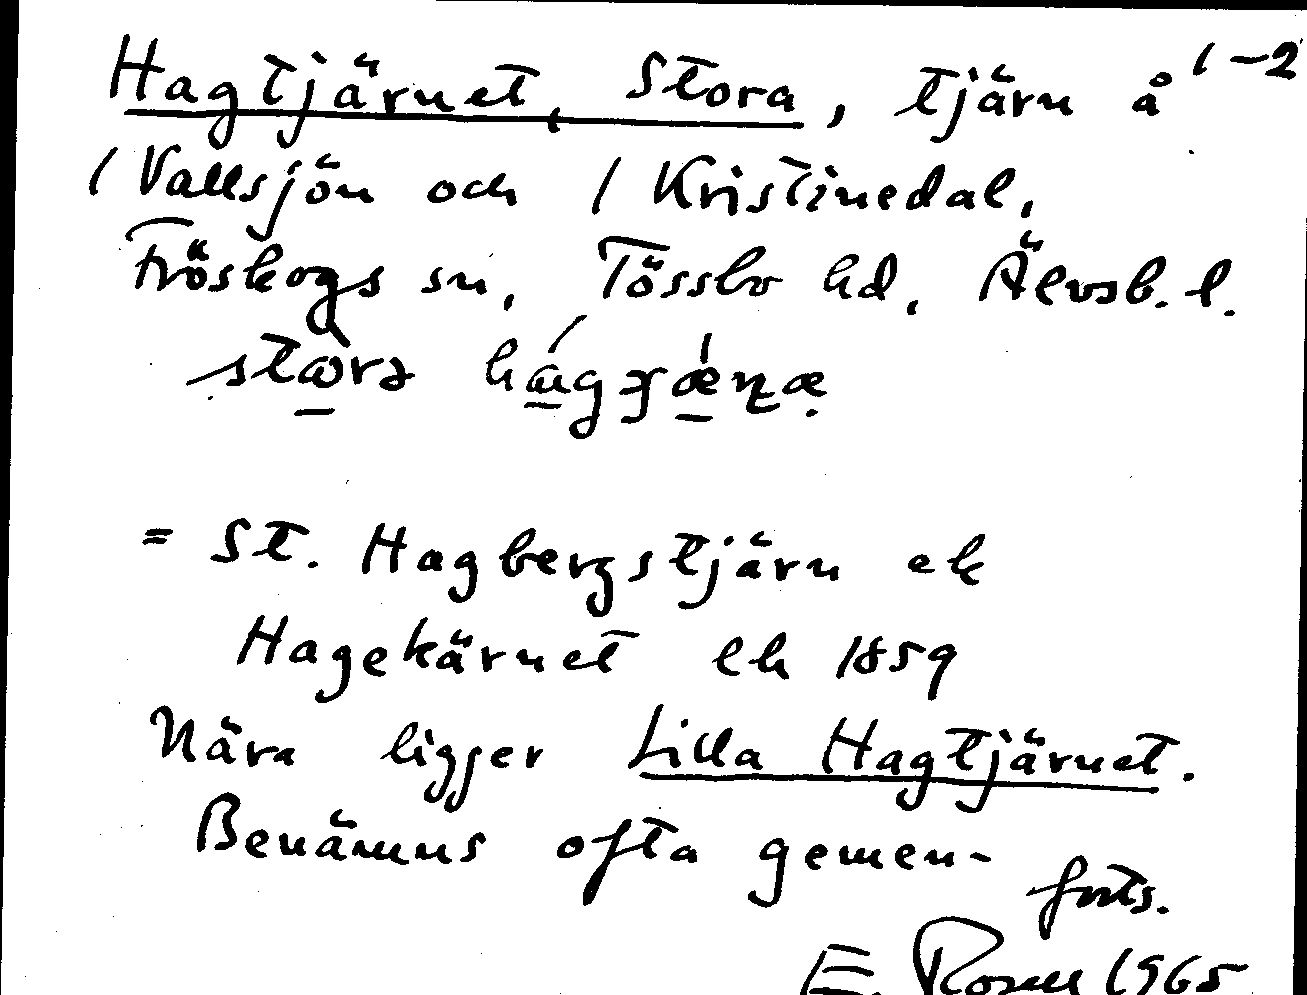 Hagtjärnet, Stora, tjärn å 1-2
/ Vallsjön och / Kristinedal,
Fröskogs sn, Tössbo hd, Älvsb. l.
= St. Hagbergstjärn ek
Hagekärnet ek 1859
Nära ligger Lilla Hagtjärnet.
Benämns ofta gemen-
forts.
E. 1965